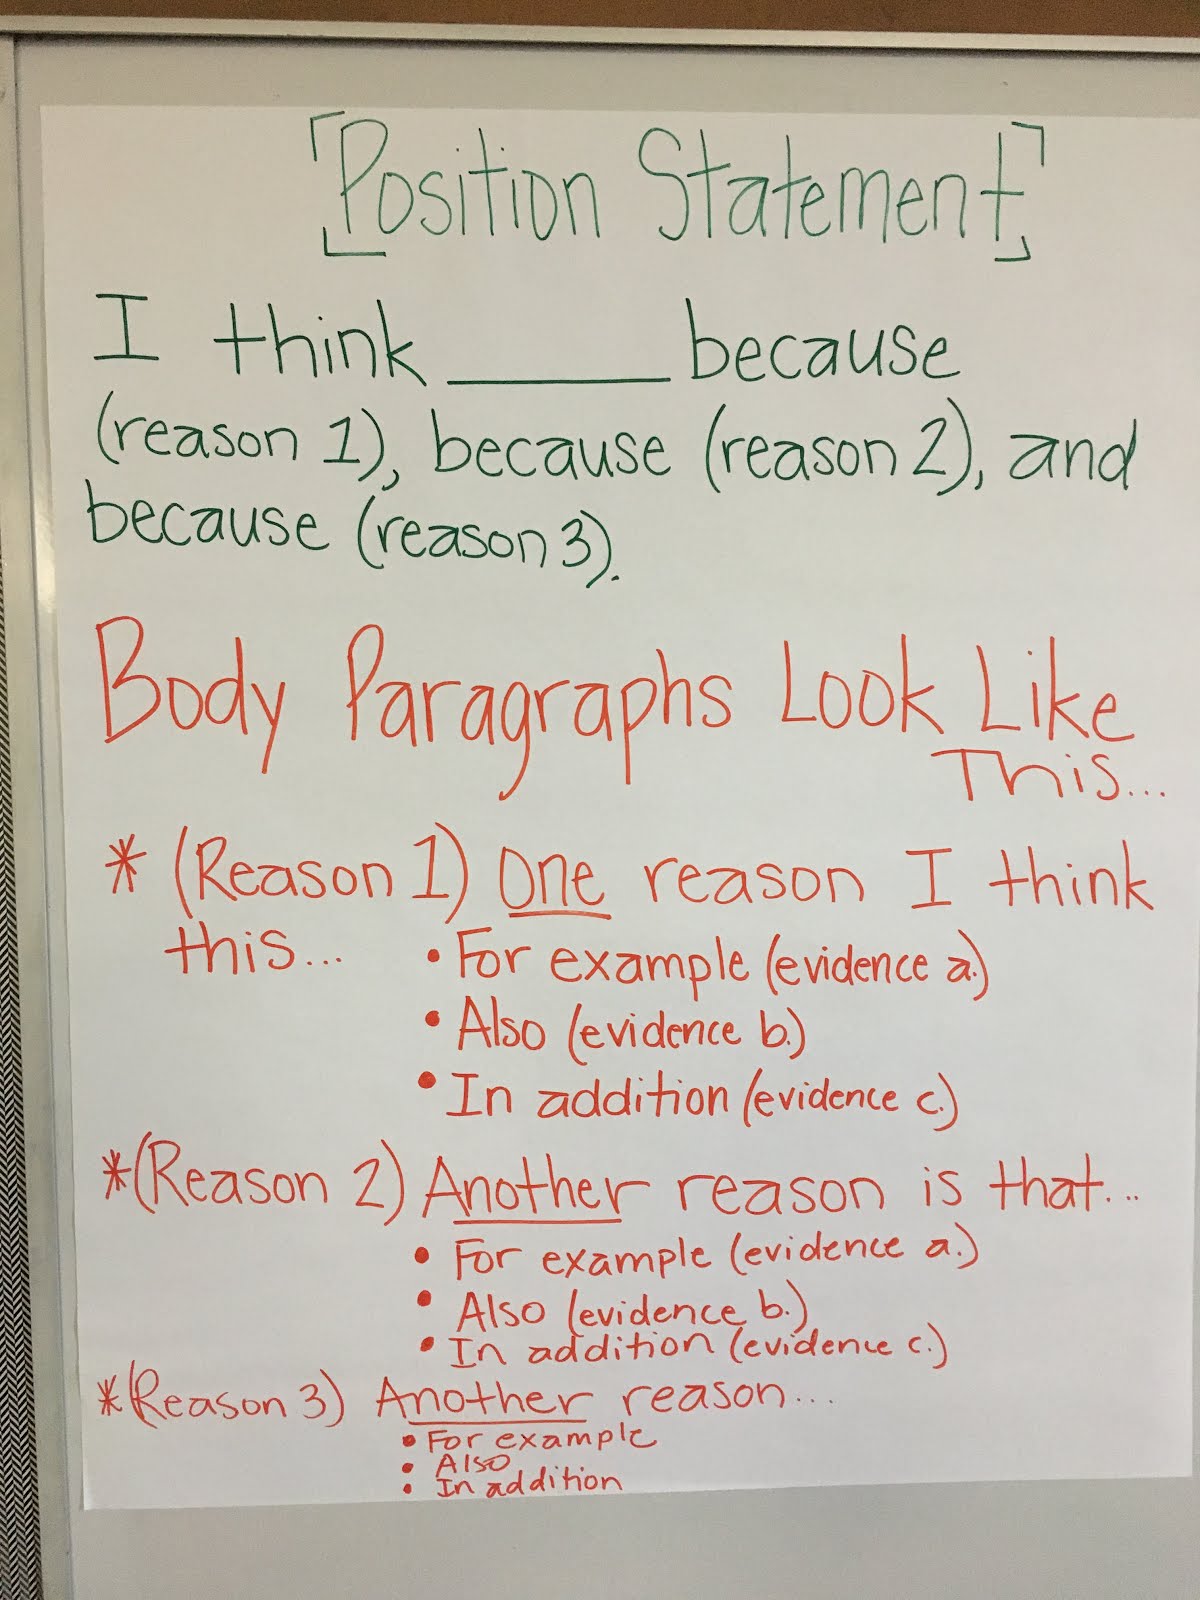 Position Statement
I think ______ because
(reason 1), because (reason 2), and
because (reason 3).
Body Paragraphs Look Like
This...
* (Reason 1) One reason I think
this... • For example (evidence a.)
• Also (evidence b.)
• In addition (evidence c.)
*(Reason 2) Another reason is that...
• For example (evidence a.)
• Also (evidence b.)
• In addition (evidence c.)
*(Reason 3) Another reason...
• For example
• Also
• In addition